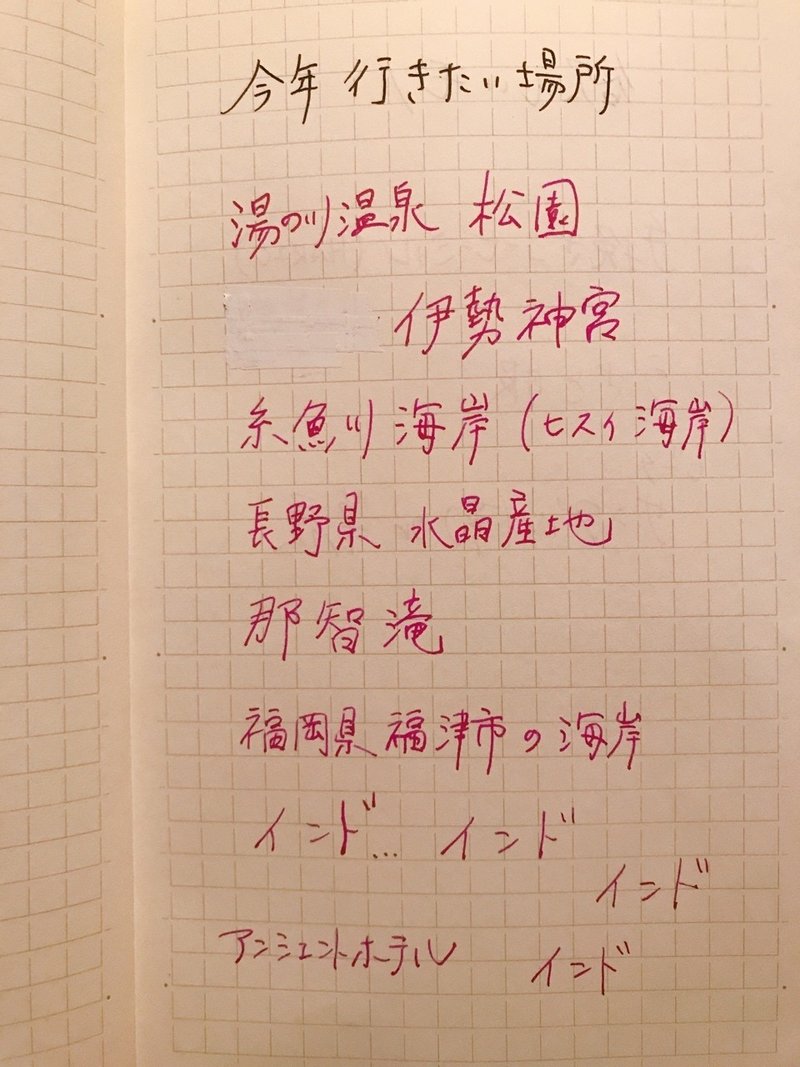 今年 行きたい場所
湯の川温泉 松園
伊勢神宮
糸魚川 海岸 (ヒスイ海岸)
長野県 水晶産地
那智滝
福岡県 福津市の海岸
インド… インド
インド
アンシェントホテル インド